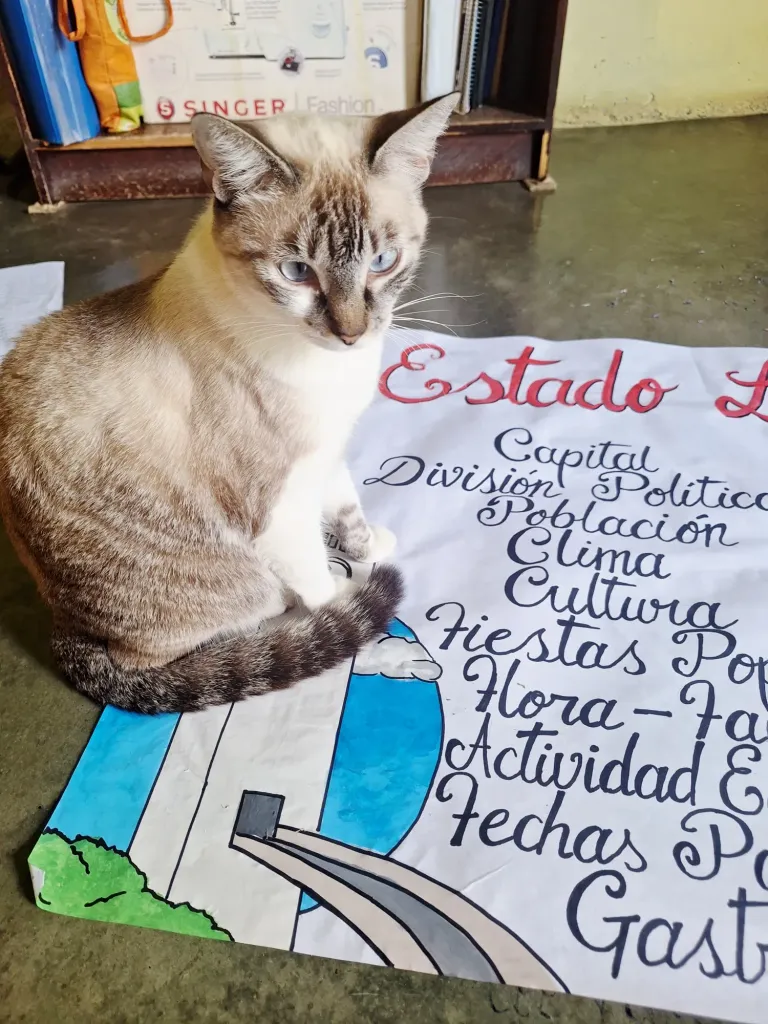 SINGER Fashion
Estado
Capital
División Política
Población
Clima
Cultura
Fiestas
Flora -
Actividad
Fechas